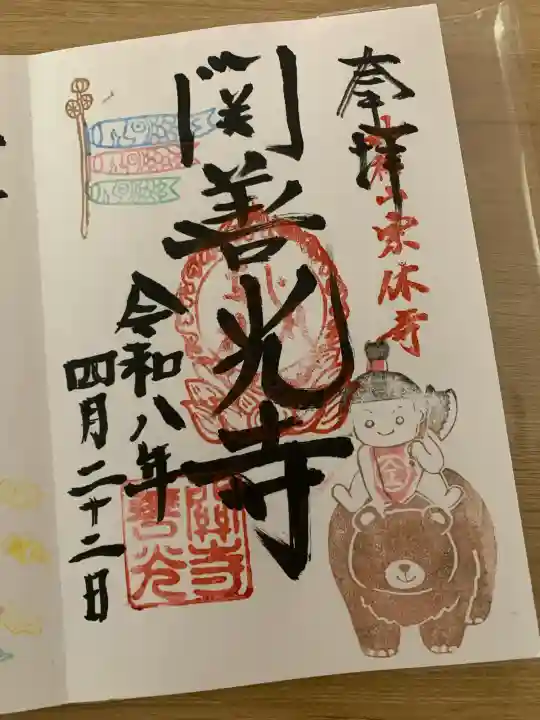 奉拝
関善光寺
令和八年
四月二十二日
金
関善光寺